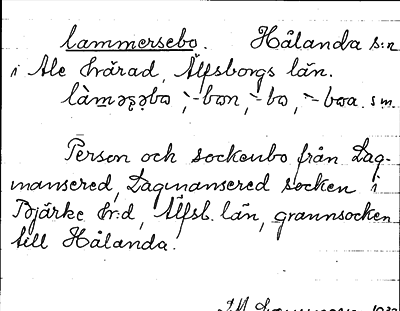 lammersebo. Hålanda s:n
i Ale härad, Älfsborgs län.
làm̥əʂəbω, -bωn, -bω, -bωa. sm.
Person och sockenbo från Lag-
mansered, Lagmansered socken i
Bjärke hr:d, Älfsb. län, grannsocken
till Hålanda.